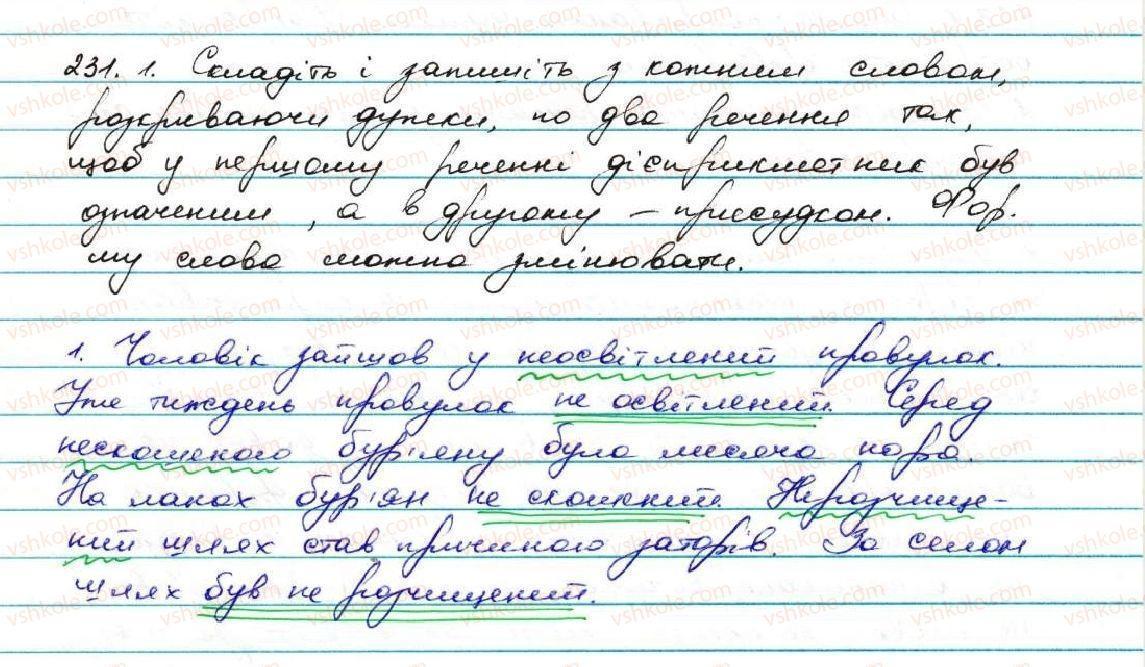 231. 1. Складіть і запишіть з кожним словом,
розкриваючи дужки, по два речення так,
щоб у першому реченні дієприкметник був
означеним, а в другому – присудком. Фор-
му слова можна змінювати.
1. Чоловік зайшов у неосвітлений провулок.
Уже тиждень провулок не освітлений. Серед
нескошеного бур'яну була лисяча нора.
На ланах бур'ян не скошений. Нерозчище-
ний шлях став причиною заторів. За селом
шлях був не розчищений.